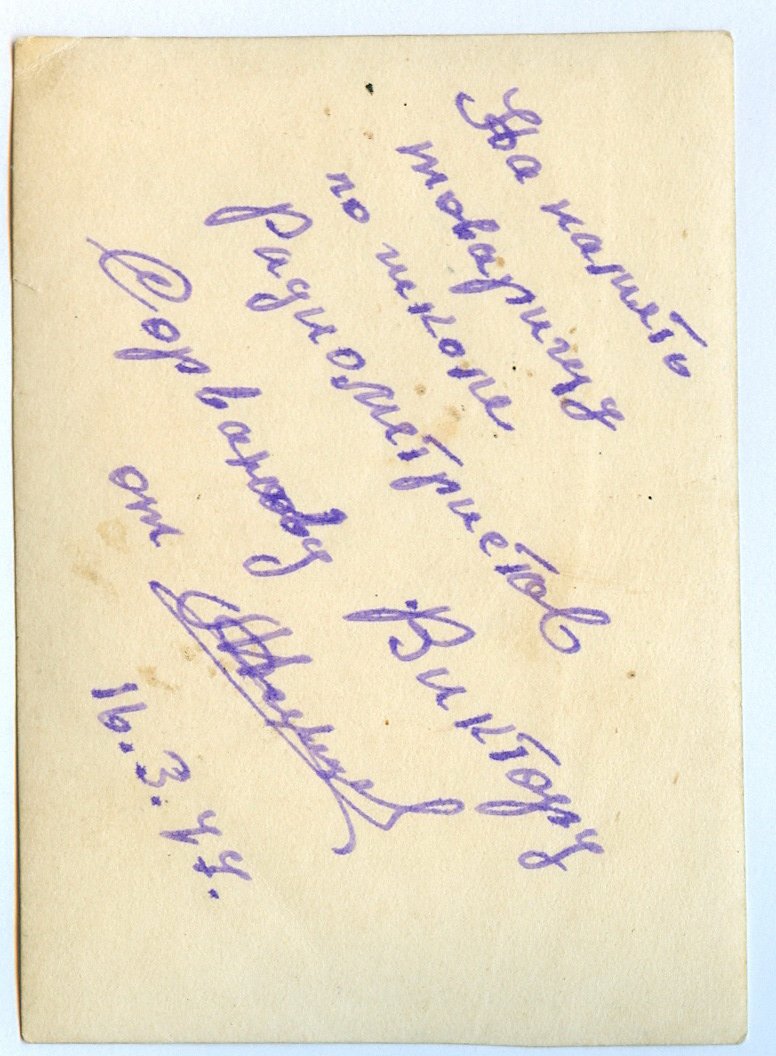 На память
товарищу
по школе
Радиометристов
Сорванову Виктору
от
16.3.47.